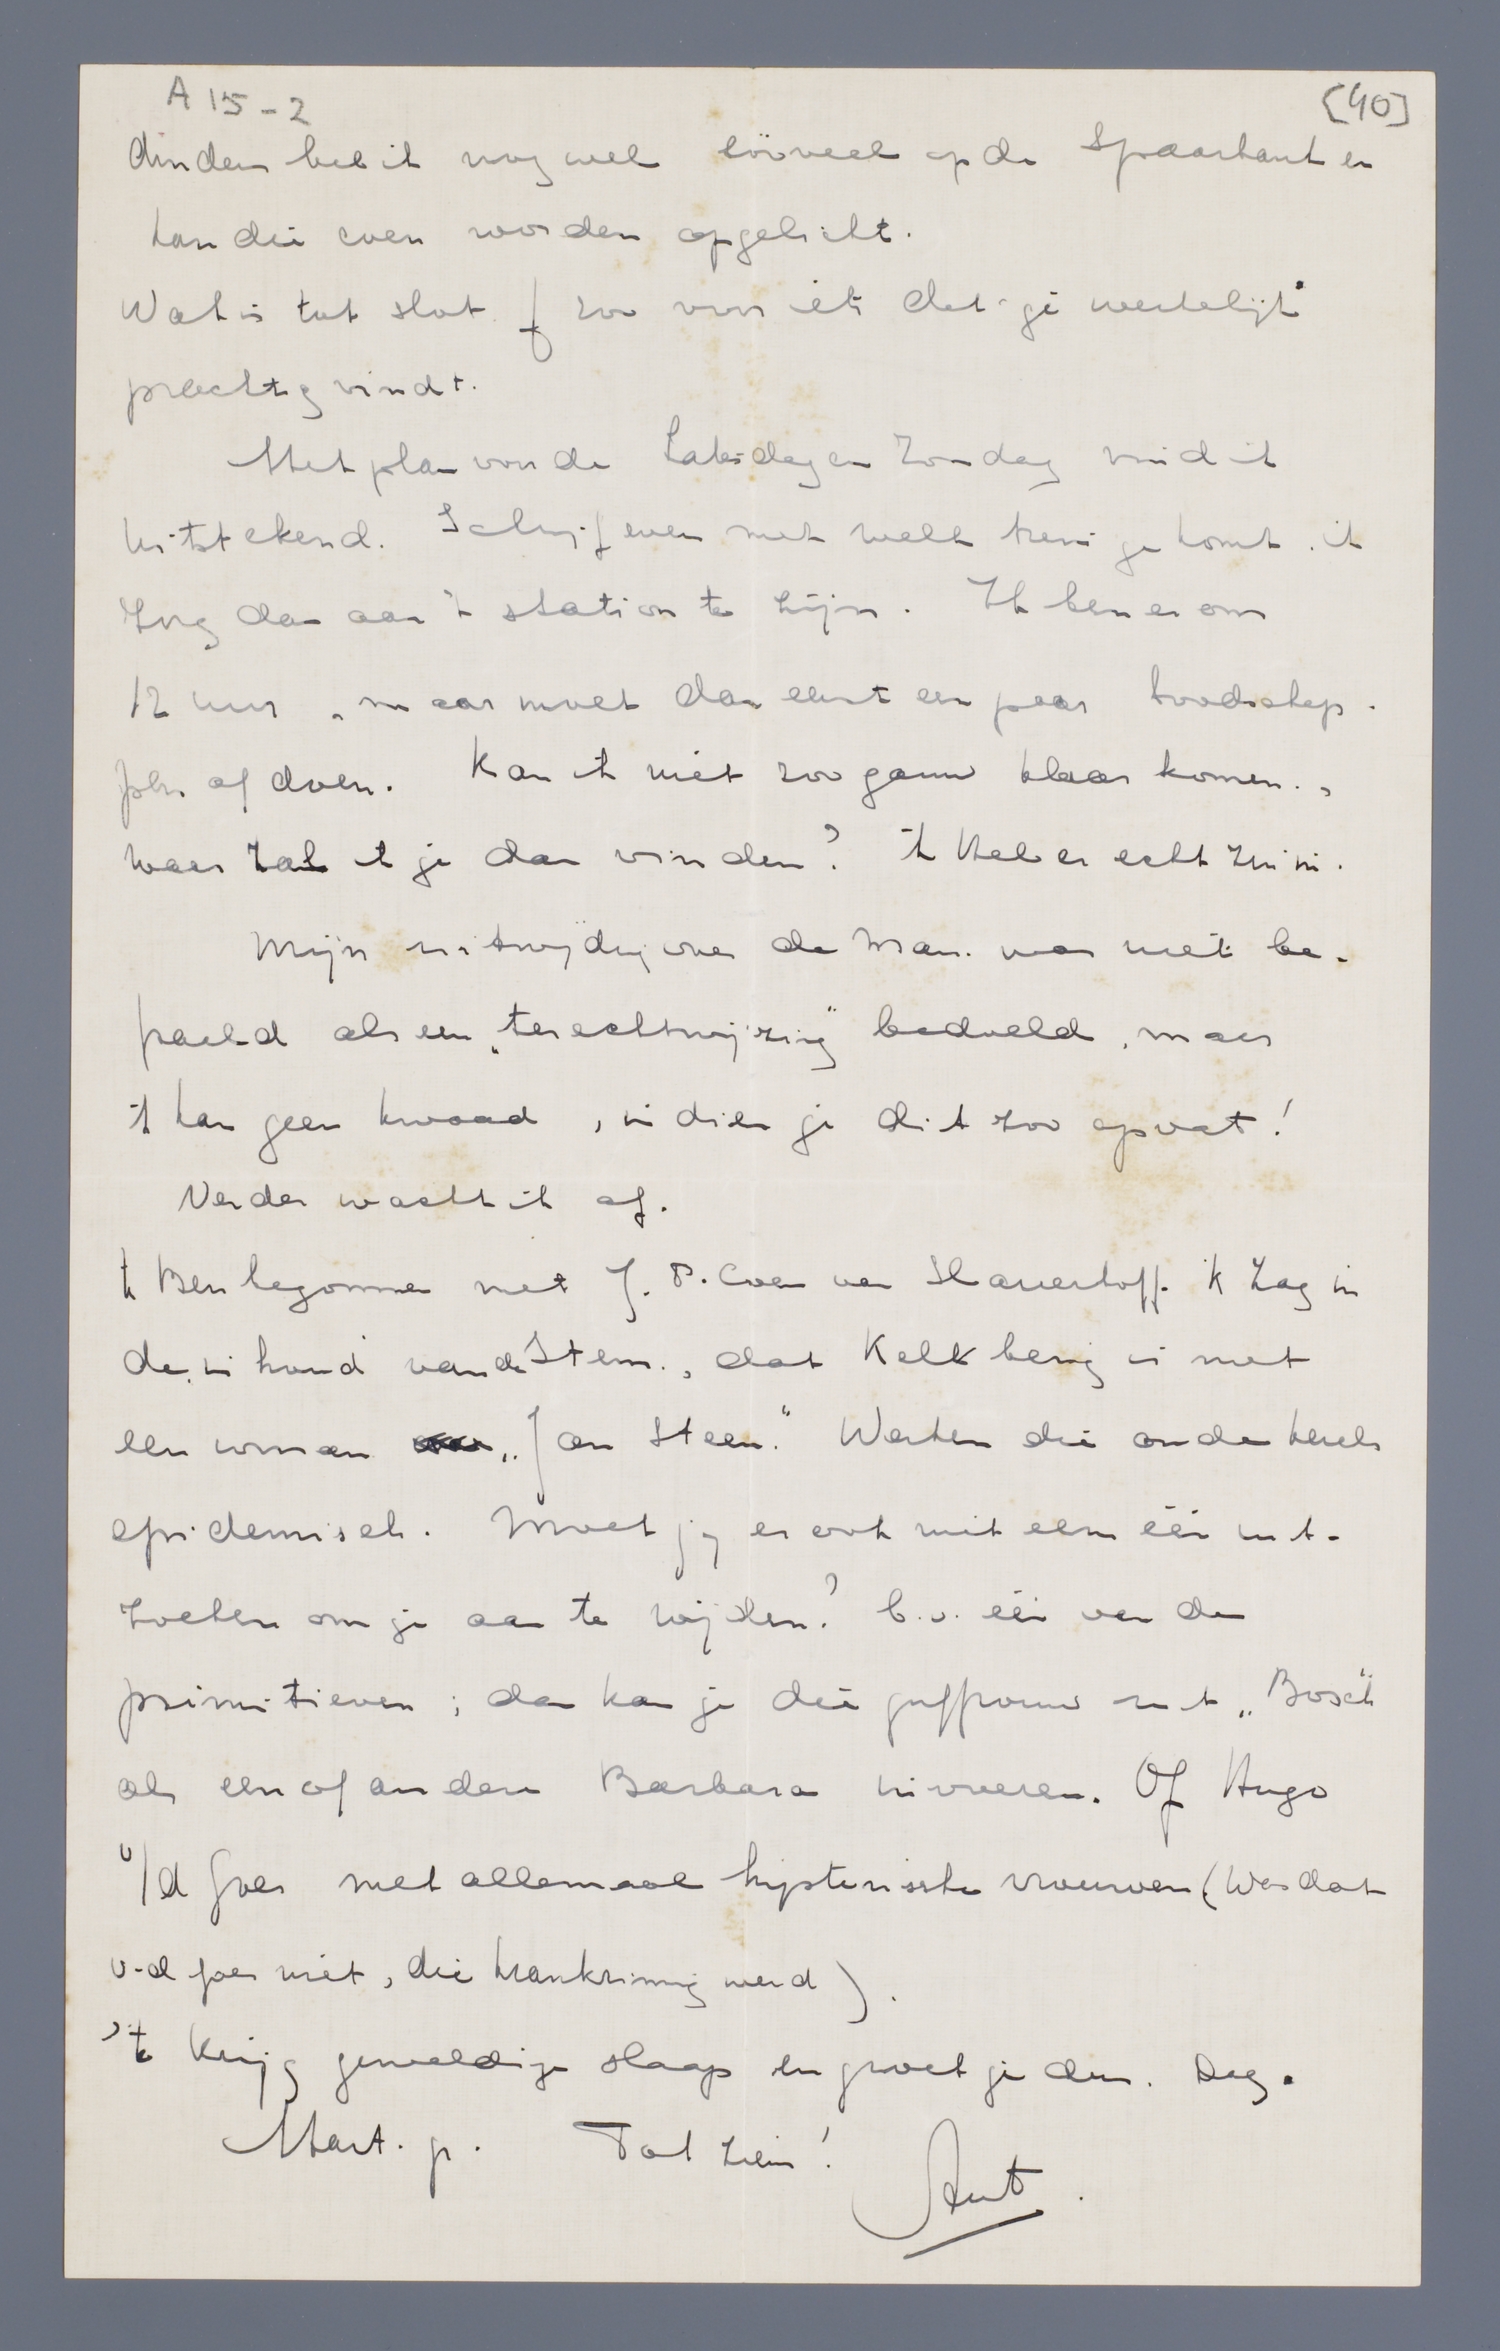 A 15-2 [40]
dinden heb ik nog wel zóóveel op de Spaarbank en
kan die even worden opgelicht.
Wat is tot slot f zoo voor iets dat ge werkelijk
prachtig vindt.
Het plan van de Zaterdag en Zondag vind ik
uitstekend. Schrijf even met welk trein ge komt. ik
zorg dan aan 't station te zijn. Ik ben er om
12 uur, maar moet dan eerst een paar boodschap-
pen afdoen. Kan ik niet zoo gauw klaar komen.,
waar zal ik je dan vinden? 'k Heb er echt zin in.
Mijn uitwijding over de Man. was niet be-
paald als een "terechtwijzing" bedoeld, maar
't kan geen kwaad, indien je dit zoo opvat!
Verder wacht ik af.
'k Ben begonnen met J. P. Coen van Slauerhoff. 'k Zag in
de inhoud van de Stem., dat Kelk bezig is met
een roman "Jan Steen." Werken die oude kerels
epidemisch. Moet jij er ook niet eens één uit-
zoeken om je aan te wijden? b.v. één van de
primitieven; dan kan je die juffrouw uit "Bosch"
als een of andere Barbara invoeren. Of Hugo
v/d Goes met allemaal hysterische vrouwen (Was dat
v-d Goes niet, die krankzinnig werd).
'k Krijg geweldige slaap en groet je dus. Dag.
Hart. gr. Tot ziens!